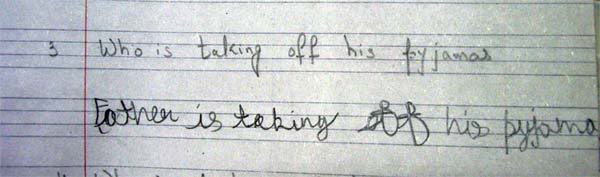 3 Who is taking off his pyjamas
Father is taking off his pyjama